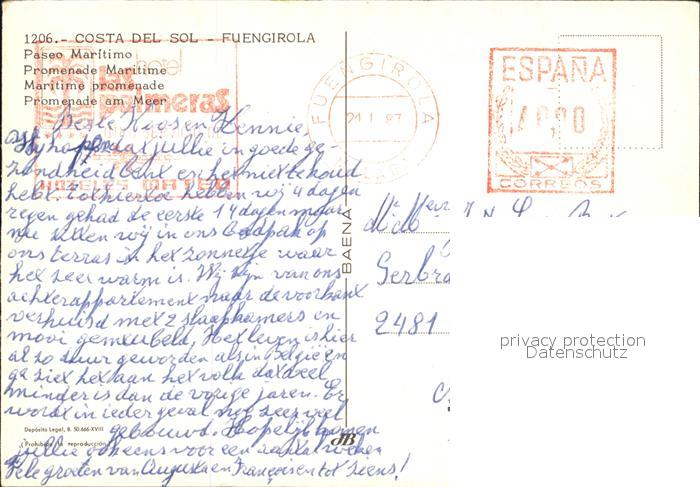 1206.- COSTA DEL SOL - FUENGIROLA
Paseo Marítimo
Promenade Maritime
Maritime promenade
Promenade am Meer
hotel
las
palmeras
HOTELES MATEO
FUENGIROLA
21 I 87
ESPAÑA
CORREOS
Beste Roos en Hennie,
Wij hopen dat jullie in goede ge-
zondheid bent en het niet te koud
hebt. Tot hiertoe hebben wij 4 dagen
regen gehad de eerste 14 dagen maar
nu zitten wij in ons badpak op
ons terras in het zonnetje waar
het zeer warm is. Wij zijn van ons
achterappartement naar de voorkant
verhuisd met 2 slaapkamers en
mooi gemeubeld. Het leven is hier
al zo duur geworden als in België en
ge ziet het aan het volk dat veel
minder is dan de vorige jaren. Er
wordt in ieder geval nog zeer veel
gebouwd. Hopelijk komen
jullie ook eens voor een aantal weken
Vele groeten van Augusta en Françoise en tot ziens!
Depósito Legal, B. 50.666-XVIII
(Prohibida la reproducción)
BAENA
Gerbra
2481
privacy protection
Datenschutz